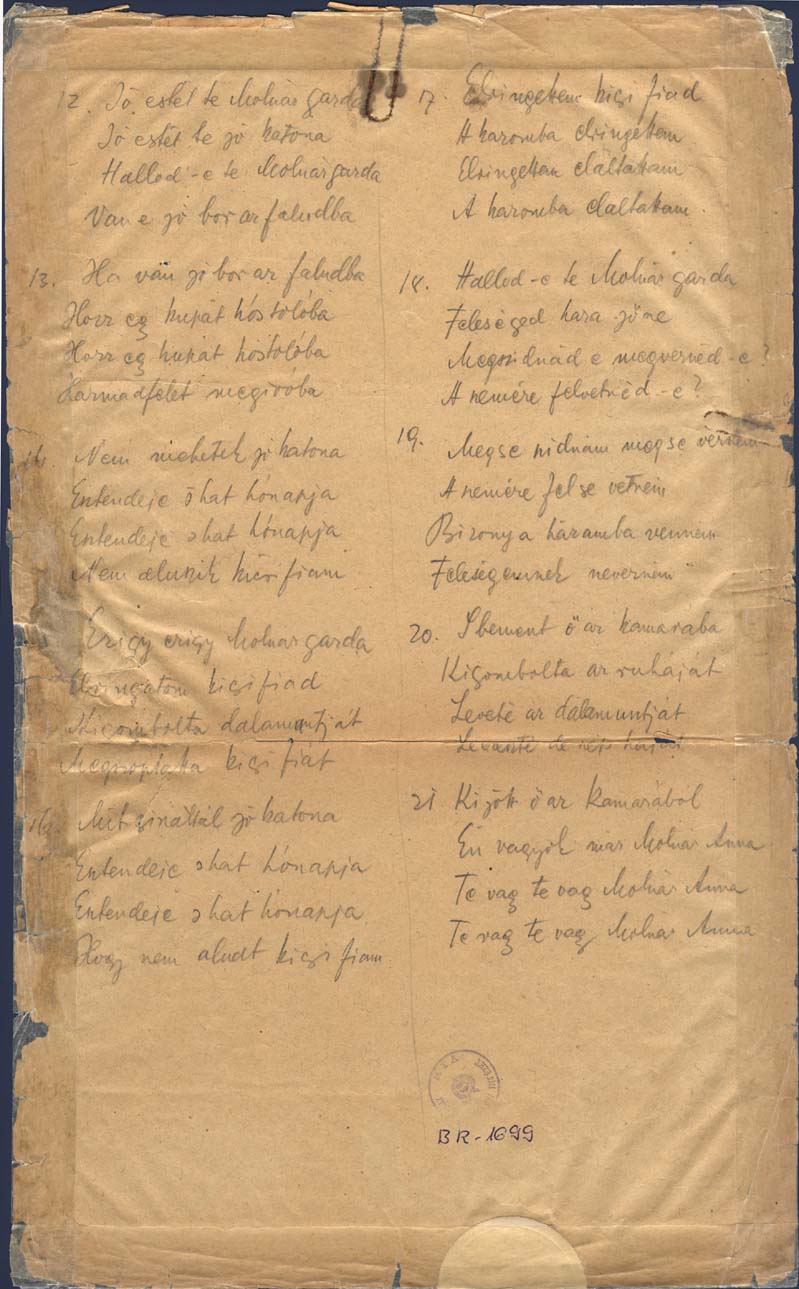 12. Jó estét te Molnár garda
Jó estét te jó katona
Hallod-e te Molnárgarda
Van e jó bor az faludba
13. Ha ván jó bor az faludba
Hozz eg kupát kóstolóba
Hozz eg kupát kóstolóba
Harmadfelet megivóba
14. Nem mehetek jó katona
Entendeje s hat hónapja
Entendeje s hat hónapja
Nem aluszik kicsi fiam
Erigy erigy Molnár garda
Elringatom kicsi fiad
Kigombolta dalamántját
kicsi fiát
16. Mit jó katona
Entendeje s hat hónapja
Entendeje s hat hónapja
Hogy nem aludt kicsi fiam
17. Elringettem kicsi fiad
A karomba elringettem
Elringettem elaltattam
A karomba elaltattam
18. Hallod-e te Molnár garda
Feleséged haza jöne
Megszidnád e megvernéd-e?
A szemére felvetnéd-e?
19. Megse szidnám megse verném
A szemére fel se vetném
Bizony a házamba venném
Feleségemnek nevezném
20. S bement ő az kamarába
Kigombolta az ruháját
Leveté az dalamuntját
21 Kijött ő az kamarából
Én vagyok már Molnár Anna
Te vag te vag Molnár Anna
Te vag te vag Molnár Anna
BR-1699